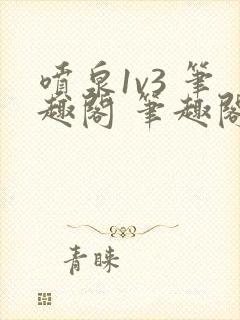 喷泉1v3 筆
趣閣 筆趣閣
青睐